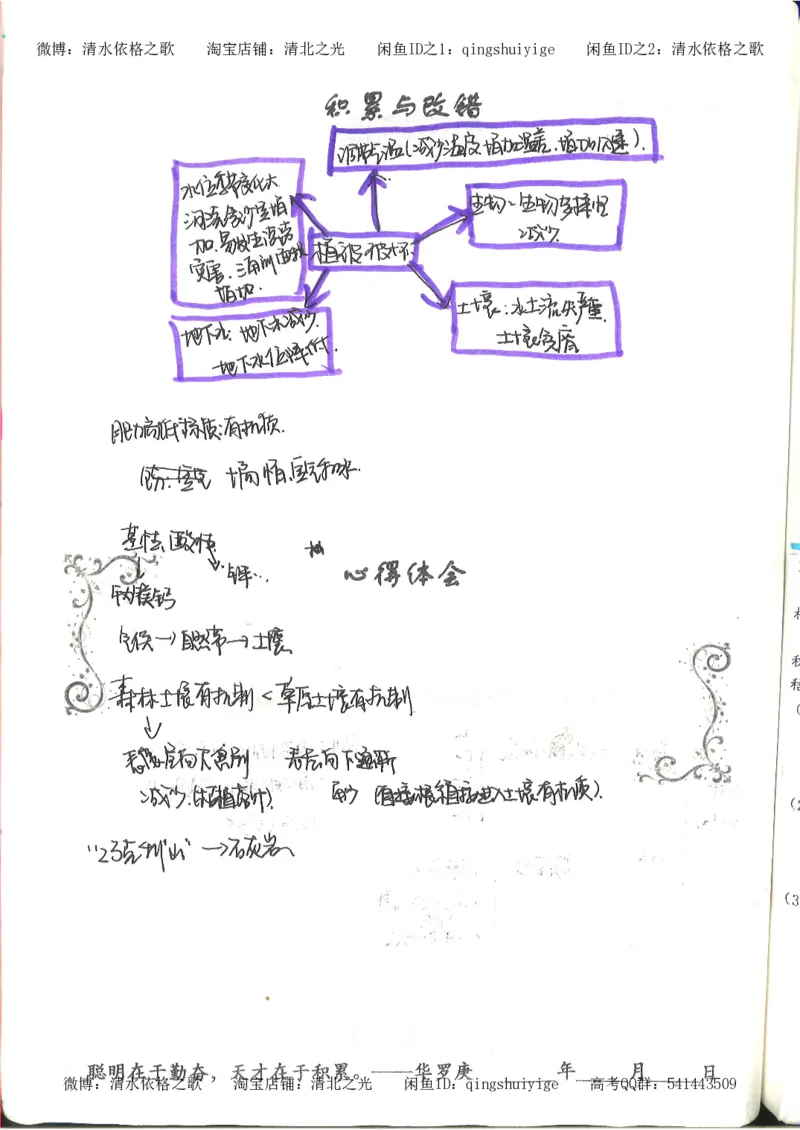 微博：清水依格之歌 淘宝店铺：清北之光 闲鱼ID之1：qingshuiyige 闲鱼ID之2：清水依格之歌
积累与改错
调节气温(减少湿度,增加温差,增加风速).
水位季节变化大
河流含沙量增
加.易发生洪涝
灾害.三角洲面积
增加.
生物:生物多样性
减少.
植被破坏
土壤:水土流失严重.
土壤贫瘠
地下水:地下水减少.
地下水位降低.
肥力高低标志:有机质.
基性 酸性
心得体会
钠镁钙
气候→自然带→土壤
森林土壤有机制<草原土壤有机制
表层向下 表层向下逐渐
减少.(枯枝落叶). 减少 (直接根系直接进入土壤有机质).
→石灰岩
聪明在于勤奋，天才在于积累。——华罗庚 年 月 日
微博：清水依格之歌 淘宝店铺：清北之光 闲鱼ID：qingshuiyige 高考QQ群：541443509